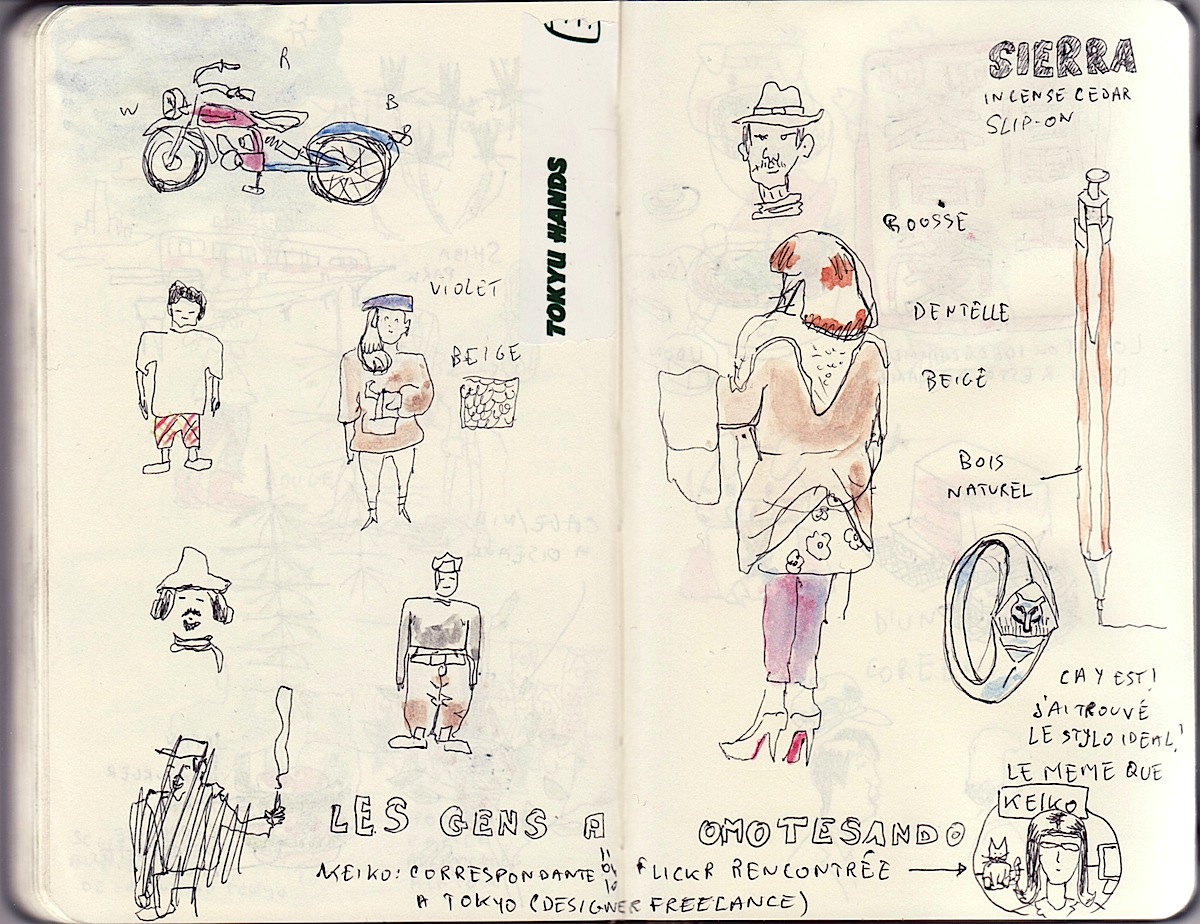 R
W
B
TOKYU HANDS
VIOLET
BEIGE
LES GENS A
OMOTESANDO
KEIKO: CORRESPONDANTE
FLICKR RENCONTRÉE
A TOKYO (DESIGNER FREELANCE)
SIERRA
INCENSE CEDAR
SLIP-ON
ROUSSE
DENTELLE
BEIGE
BOIS
NATUREL
CA Y EST!
J'AI TROUVÉ
LE STYLO IDEAL!
LE MEME QUE
KEIKO